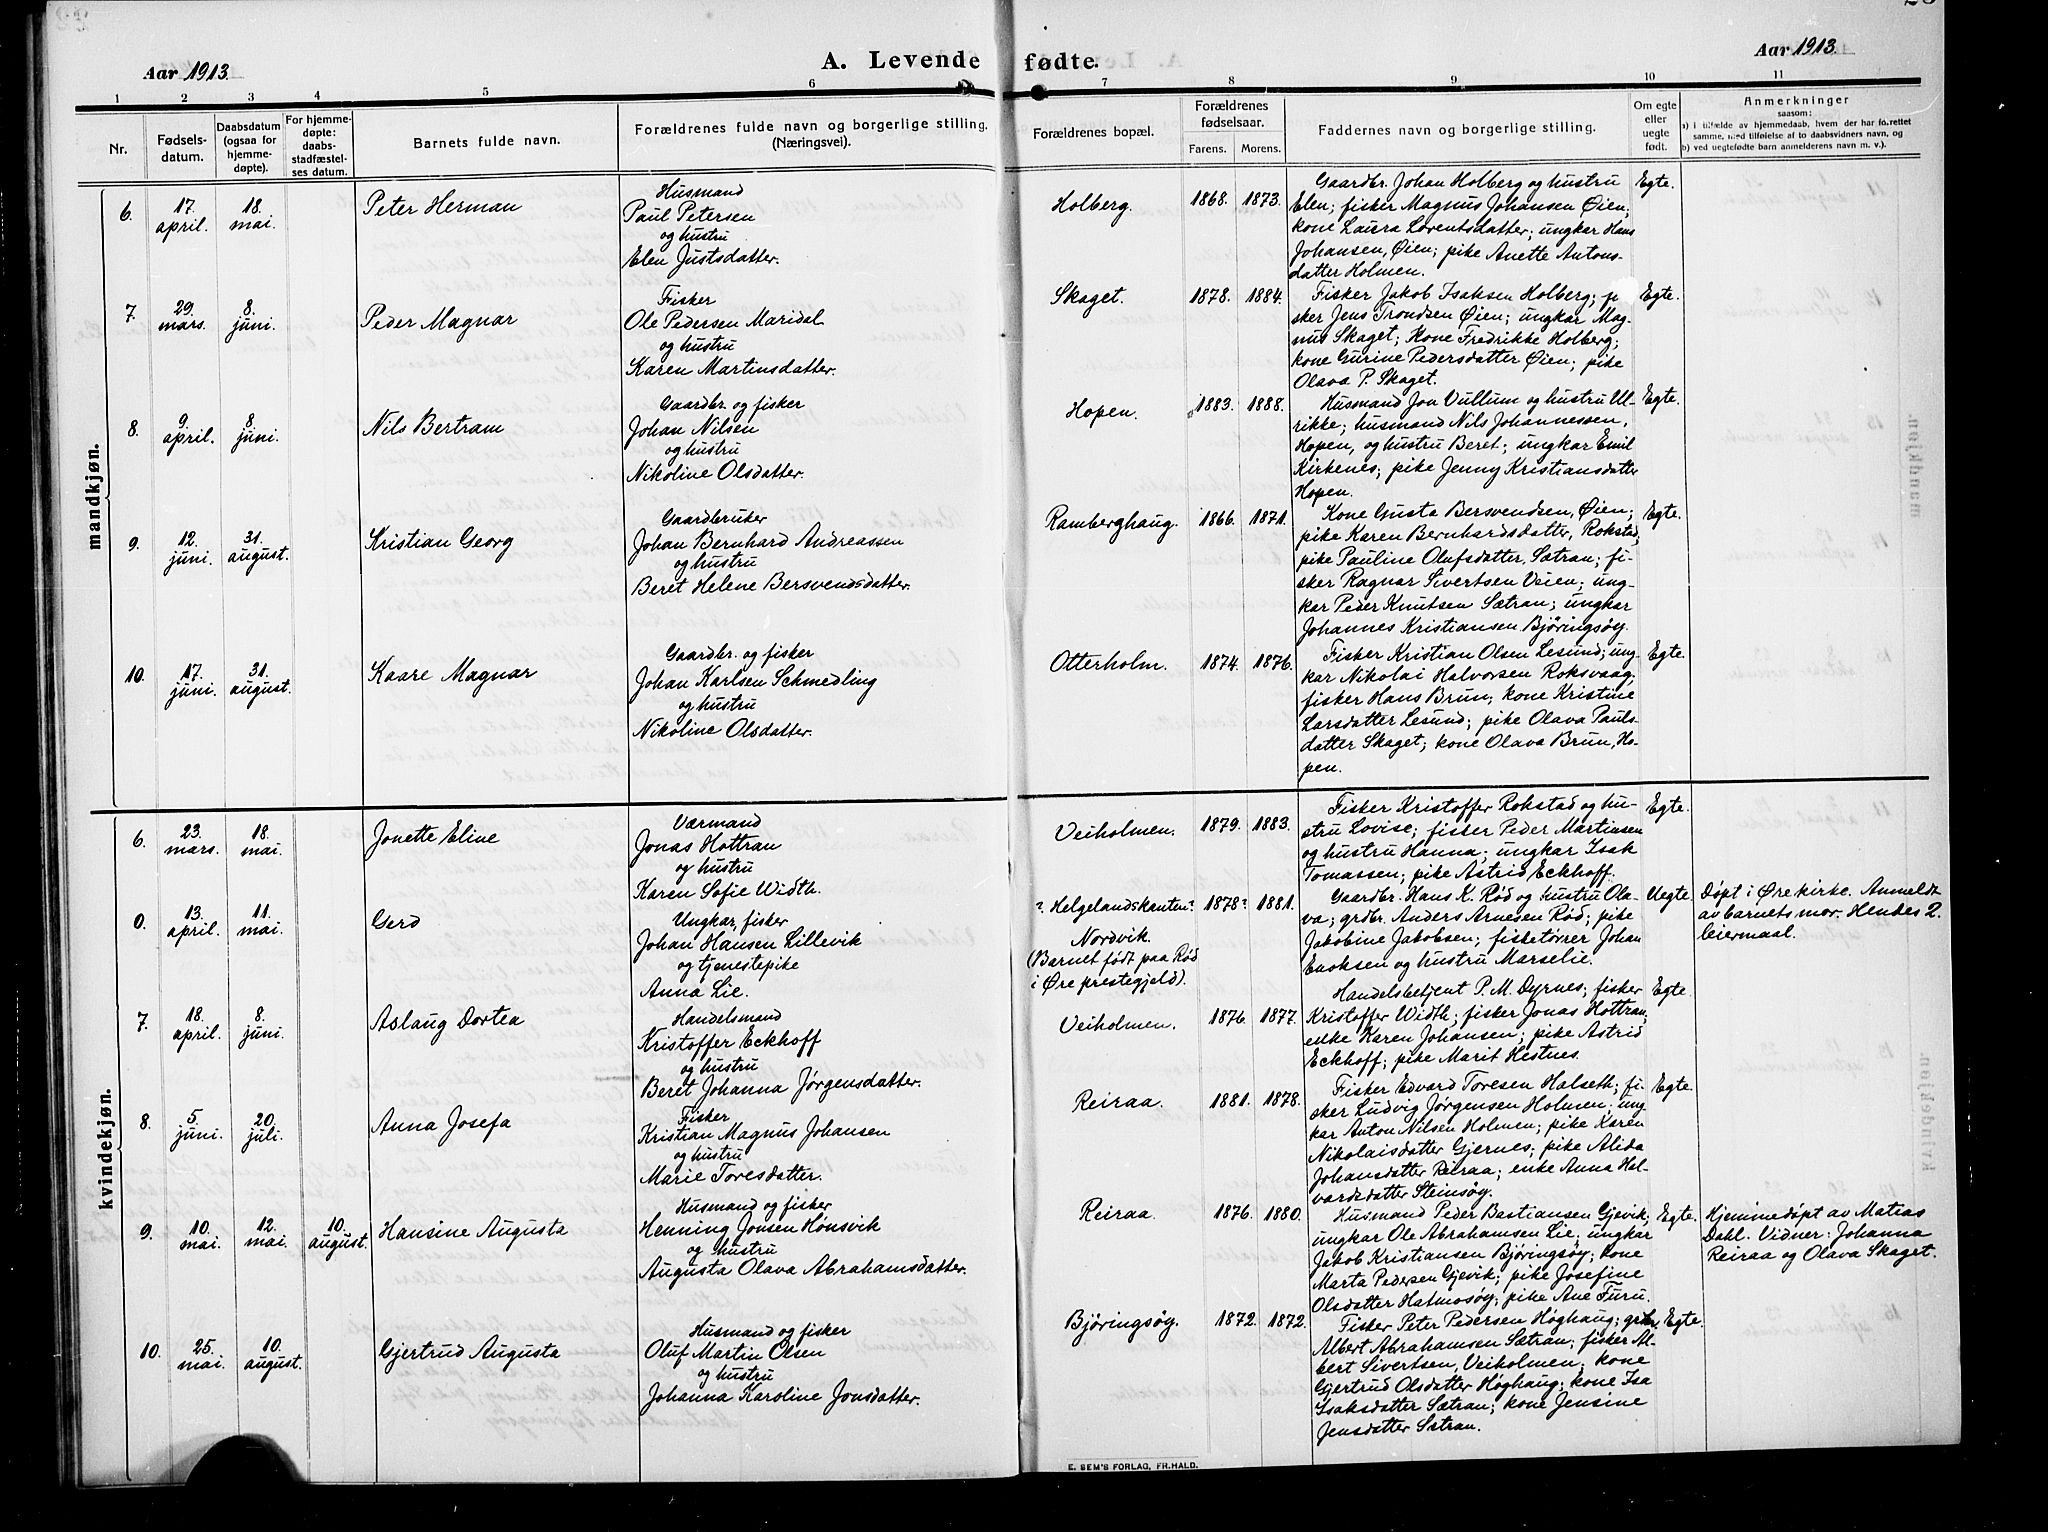 Aar 1913.
A. Levende fødte.
Aar 1913.
1 2 3 4 5 6 7 8 9 10 11
Nr.
Fødsels-
datum.
Daabsdatum
(ogsaa for
hjemme-
døpte).
For hjemme-
døpte:
daabs-
stadfæstel-
ses datum.
Barnets fulde navn.
Forældrenes fulde navn og borgerlige stilling.
(Næringsvei).
Forældrenes bopæl.
Forældrenes
fødselsaar.
Farens. Morens.
Faddernes navn og borgerlige stilling.
Om egte
eller
uegte
født.
Anmerkninger
saasom:
a) i tilfælde av hjemmedaab, hvem der har forrettet
samme, med tilføielse af to daabsvidners navn, og
b) ved uegtefødte barn anmelderens navn m. v.).
mandkjøn.
6.
17.
april.
18.
mai.
Peter Herman
Husmand
Paul Petersen
og hustru
Elen Justsdatter.
Holberg.
1868. 1873.
Gaardbr. Johan Holberg og hustru
Elen; fisker Magnus Johansen Øien;
kone Laura Lorentsdatter; ungkar Hans
Johansen, Øien; pike Anette Antons-
datter Holmen.
Egte.
7.
29.
mars.
8.
juni.
Peder Magnar
Fisker
Ole Pedersen Maridal
og hustru
Karen Martinsdatter.
Skaget.
1878. 1884.
Fisker Jakob Isaksen Holberg;
sker Jens Trondsen Øien; ungkar Mag-
nus Skaget; Kone Fredrikke Holberg;
kone Gurine Pedersdatter Øien; pike
Olava P. Skaget.
Egte.
8.
9.
april.
8.
juni.
Nils Bertram
Gaardbr. og fisker
Johan Nilsen
og hustru
Nikoline Olsdatter.
Hopen.
1883. 1888.
Husmand Jon Vullum og hustru Ul-
rikke; husmand Nils Johannessen,
Hopen, og hustru Beret; ungkar Emil
Kirkenes; pike Jenny Kristiansdatter
Hopen.
Egte.
9.
12.
juni.
31.
august.
Kristian Georg
Gaardbruker
Johan Bernhard Andreassen
og hustru
Beret Helene Bersvendsdatter.
Ramberghaug.
1866. 1871.
Kone Gusta Bersvendsen, Øien;
pike Karen Bernhardsdatter, Rokstad;
pike Pauline Olufsdatter, Sætran; fi-
sker Ragnar Sivertsen Veien; ung-
kar Peder Knutsen Sætran; ungkar
Johannes Kristiansen Bjøringsøy.
Egte.
10.
17.
juni.
31.
august.
Kaare Magnar
Gaardbr. og fisker
Johan Karlsen Schmedling
og hustru
Nikoline Olsdatter.
Otterholm.
1874. 1876.
Fisker Kristian Olsen Lesund; ung-
kar Nikolai Halvorsen Roksvaag;
fisker Hans Brun; kone Kristine
Larsdatter Lesund; pike Olava Pauls-
datter Skaget; kone Olava Brun, Ho-
pen.
Egte.
kvindekjøn.
6.
23.
mars.
18.
mai.
Jonette Eline
Værmand
Jonas Hottran
og hustru
Karen Sofie Width.
Veiholmen.
1879. 1883.
Fisker Kristoffer Rokstad og hu-
stru Lovise; fisker Peder Martinsen
og hustru Hanna; ungkar Isak
Tomassen; pike Astrid Eckhoff.
Egte.
0.
13.
april.
11.
mai.
Gerd
Ungkar, fisker
Johan Hansen Lillevik
og tjenestepike
Anna Lie.
? Helgelandskanten?
Nordvik.
(Barnet født paa Rød
i Øre prestegjeld).
1878? 1881.
Gaardbr. Hans K. Rød og hustru Ola-
va; grdbr. Anders Arnesen Rød; pike
Jakobine Jakobsen; fisketørrer Johan
Enoksen og hustru Marselie.
Uegte.
Døpt i Øre kirke. Anmeldt
av barnets mor. Hendes 2.
leiermaal.
7.
18.
april.
8.
juni.
Aslaug Dortea
Handelsmand
Kristoffer Eckhoff
og hustru
Beret Johanna Jørgensdatter.
Veiholmen.
1876. 1877.
Handelsbetjent P. M. Dyrnes; fisker
Kristoffer Width; fisker Jonas Hottran;
enke Karen Johansen; pike Astrid
Eckhoff; pike Marit Hestnes.
Egte.
8.
5.
juni.
20.
juli.
Anna Josefa
Fisker
Kristian Magnus Johansen
og hustru
Marie Toresdatter.
Reiraa.
1881. 1878.
Fisker Edvard Toresen Halseth; fi-
sker Ludvig Jørgensen Holmen; ung-
kar Anton Nilsen Holmen; pike Karen
Nikolaisdatter Gjernes; pike Alida
Johansdatter Reiraa; enke Anna Hal-
vardsdatter Steinsøy.
Egte.
9.
10.
mai.
12.
mai.
10.
august.
Hansine Augusta
Husmand og fisker
Henning Jonsen Hønsvik
og hustru
Augusta Olava Abrahamsdatter.
Reiraa.
1876. 1880.
Husmand Peder Bastiansen Gjevik;
ungkar Ole Abrahamsen Lie; ungkar
Jakob Kristiansen Bjøringsøy; kone
Marta Pedersen Gjevik; pike Josefine
Olsdatter Hatmosøy; pike Ane Furu.
Egte.
Hjemmedøpt av Matias
Dahl. Vidner: Johanna
Reiraa og Olava Skaget.
10.
25.
mai.
10.
august.
Gjertrud Augusta
Husmand og fisker
Oluf Martin Olsen
og hustru
Johanna Karoline Jonsdatter.
Bjøringsøy.
1872. 1872.
Fisker Peter Pedersen Høghaug; grdbr.
Albert Abrahamsen Sætran; fisker Al-
bert Sivertsen, Veiholmen; kone
Gjertrud Olsdatter Høghaug; kone Isa
Isaksdatter Sætran; kone Jensine
Jensdatter Sætran.
Egte.
E. SEM'S FORLAG, FR.HALD.